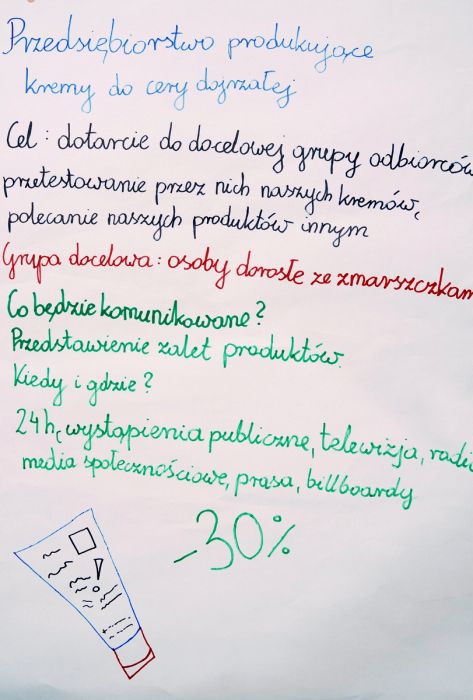 Przedsiębiorstwo produkujące
kremy do cery dojrzałej
Cel : dotarcie do docelowej grupy odbiorców
przetestowanie przez nich naszych kremów,
polecanie naszych produktów innym
Grupa docelowa : osoby dorosłe ze zmarszczkam
Co będzie komunikowane ?
Przedstawienie zalet produktów.
Kiedy i gdzie ?
24 h, wystąpienia publiczne, telewizja, radi
media społecznościowe, prasa, billboardy
-30%